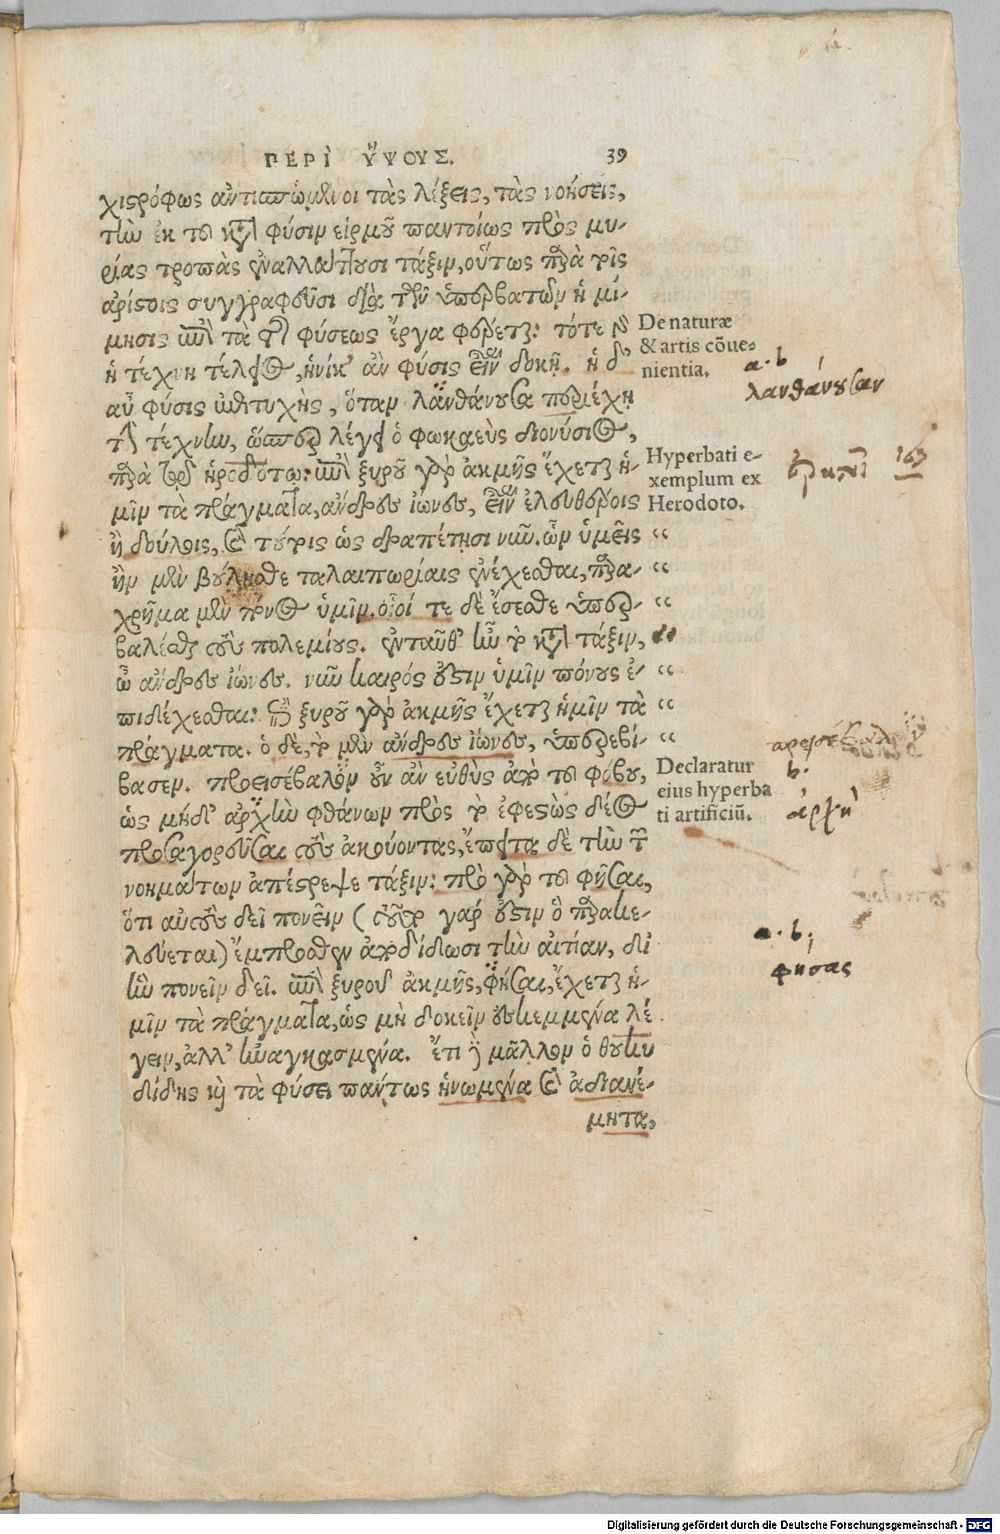 ΠΕΡΙ ὝΨΟΥΣ. 39
χιστρόφως ἀντισπώμενοι τὰς λέξεις, τὰς νοήσεις,
τὴν ἐκ τοῦ κατὰ φύσιν εἱρμοῦ παντοίως πρὸς μυ-
ρίας τροπὰς ἐναλλάττουσι τάξιν, οὕτως παρὰ τοῖς
ἀρίστοις συγγραφεῦσι διὰ τῶν ὑπερβατῶν ἡ μί-
μησις ἐπὶ τὰ τῆς φύσεως ἔργα φέρεται: τότε γὰρ
ἡ τέχνη τέλειος, ἡνίκ' ἂν φύσις εἶναι δοκῇ. ἡ δ'
αὖ φύσις ἐπιτυχὴς, ὅταν λανθάνουσα περιέχῃ
τὴν τέχνην, ὥσπερ λέγει ὁ φωκαεὺς διονύσιος,
παρὰ τῷ ἡροδότῳ: ἐπὶ ξυροῦ γὰρ ἀκμῆς ἔχεται ἡ-
μῖν τὰ πράγματα, ἄνδρες ἴωνες, εἶναι ἐλευθέροις
ἢ δούλοις, καὶ τούτοις ὡς δραπέτῃσι νῦν. ὧν ὑμεῖς “
ἢν μὲν βούλησθε ταλαιπωρίαις ἐνέχεσθαι, παρα- “
χρῆμα μὲν πόνος ὑμῖν. οἷοί τε δὲ ἔσεσθε ὑπερ- “
βαλέσθαι τοὺς πολεμίους. ἐνταῦθ' ἦν τὸ κατὰ τάξιν, “
ὦ ἄνδρες ἴωνες. νῦν καιρός ἐστιν ὑμῖν πόνους ἐ- “
πιδέχεσθαι: ἐπὶ ξυροῦ γὰρ ἀκμῆς ἔχεται ἡμῖν τὰ “
πράγματα. ὁ δὲ, τὸ μὲν ἄνδρες ἴωνες, ὑπερεβί- “
βασεν. προεισέβαλεν οὖν ἂν εὐθὺς ἀπὸ τοῦ φόβου,
ὡς μηδ' ἀρχὴν φθάνων πρὸς τὸ ἐφεστὼς δέος
προσαγορεῦσαι τοὺς ἀκούοντας, ἔπειτα δὲ τὴν τῶν
νοημάτων ἀπέστρεψε τάξιν: πρὸ γὰρ τοῦ φῆσαι,
ὅτι αὐτοὺς δεῖ πονεῖν ( τοῦτο γάρ ἐστιν ὃ παρακε-
λεύεται) ἔμπροσθεν ἀποδίδωσι τὴν αἰτίαν, δι
ἣν πονεῖν δεῖ. ἐπὶ ξυροῦ ἀκμῆς, φήσαι, ἔχεται ἡ-
μῖν τὰ πράγματα, ὡς μὴ δοκεῖν ἐσκεμμένα λέ
γειν, ἀλλ' ἠναγκασμένα. ἔτι δὲ μᾶλλον ὁ θουκυ
δίδης καὶ τὰ φύσει πάντως ἡνωμένα καὶ ἀδιανέ-
μητα,
De naturæ
& artis cōue-
nientia.
Hyperbati e-
xemplum ex
Herodoto.
Declaratur
eius hyperba
ti artificiū.
a. b
λανθάνουσαν
163
b.
ἀρχὴ
a. b.
φήσας
Digitalisierung gefördert durch die Deutsche Forschungsgemeinschaft - DFG